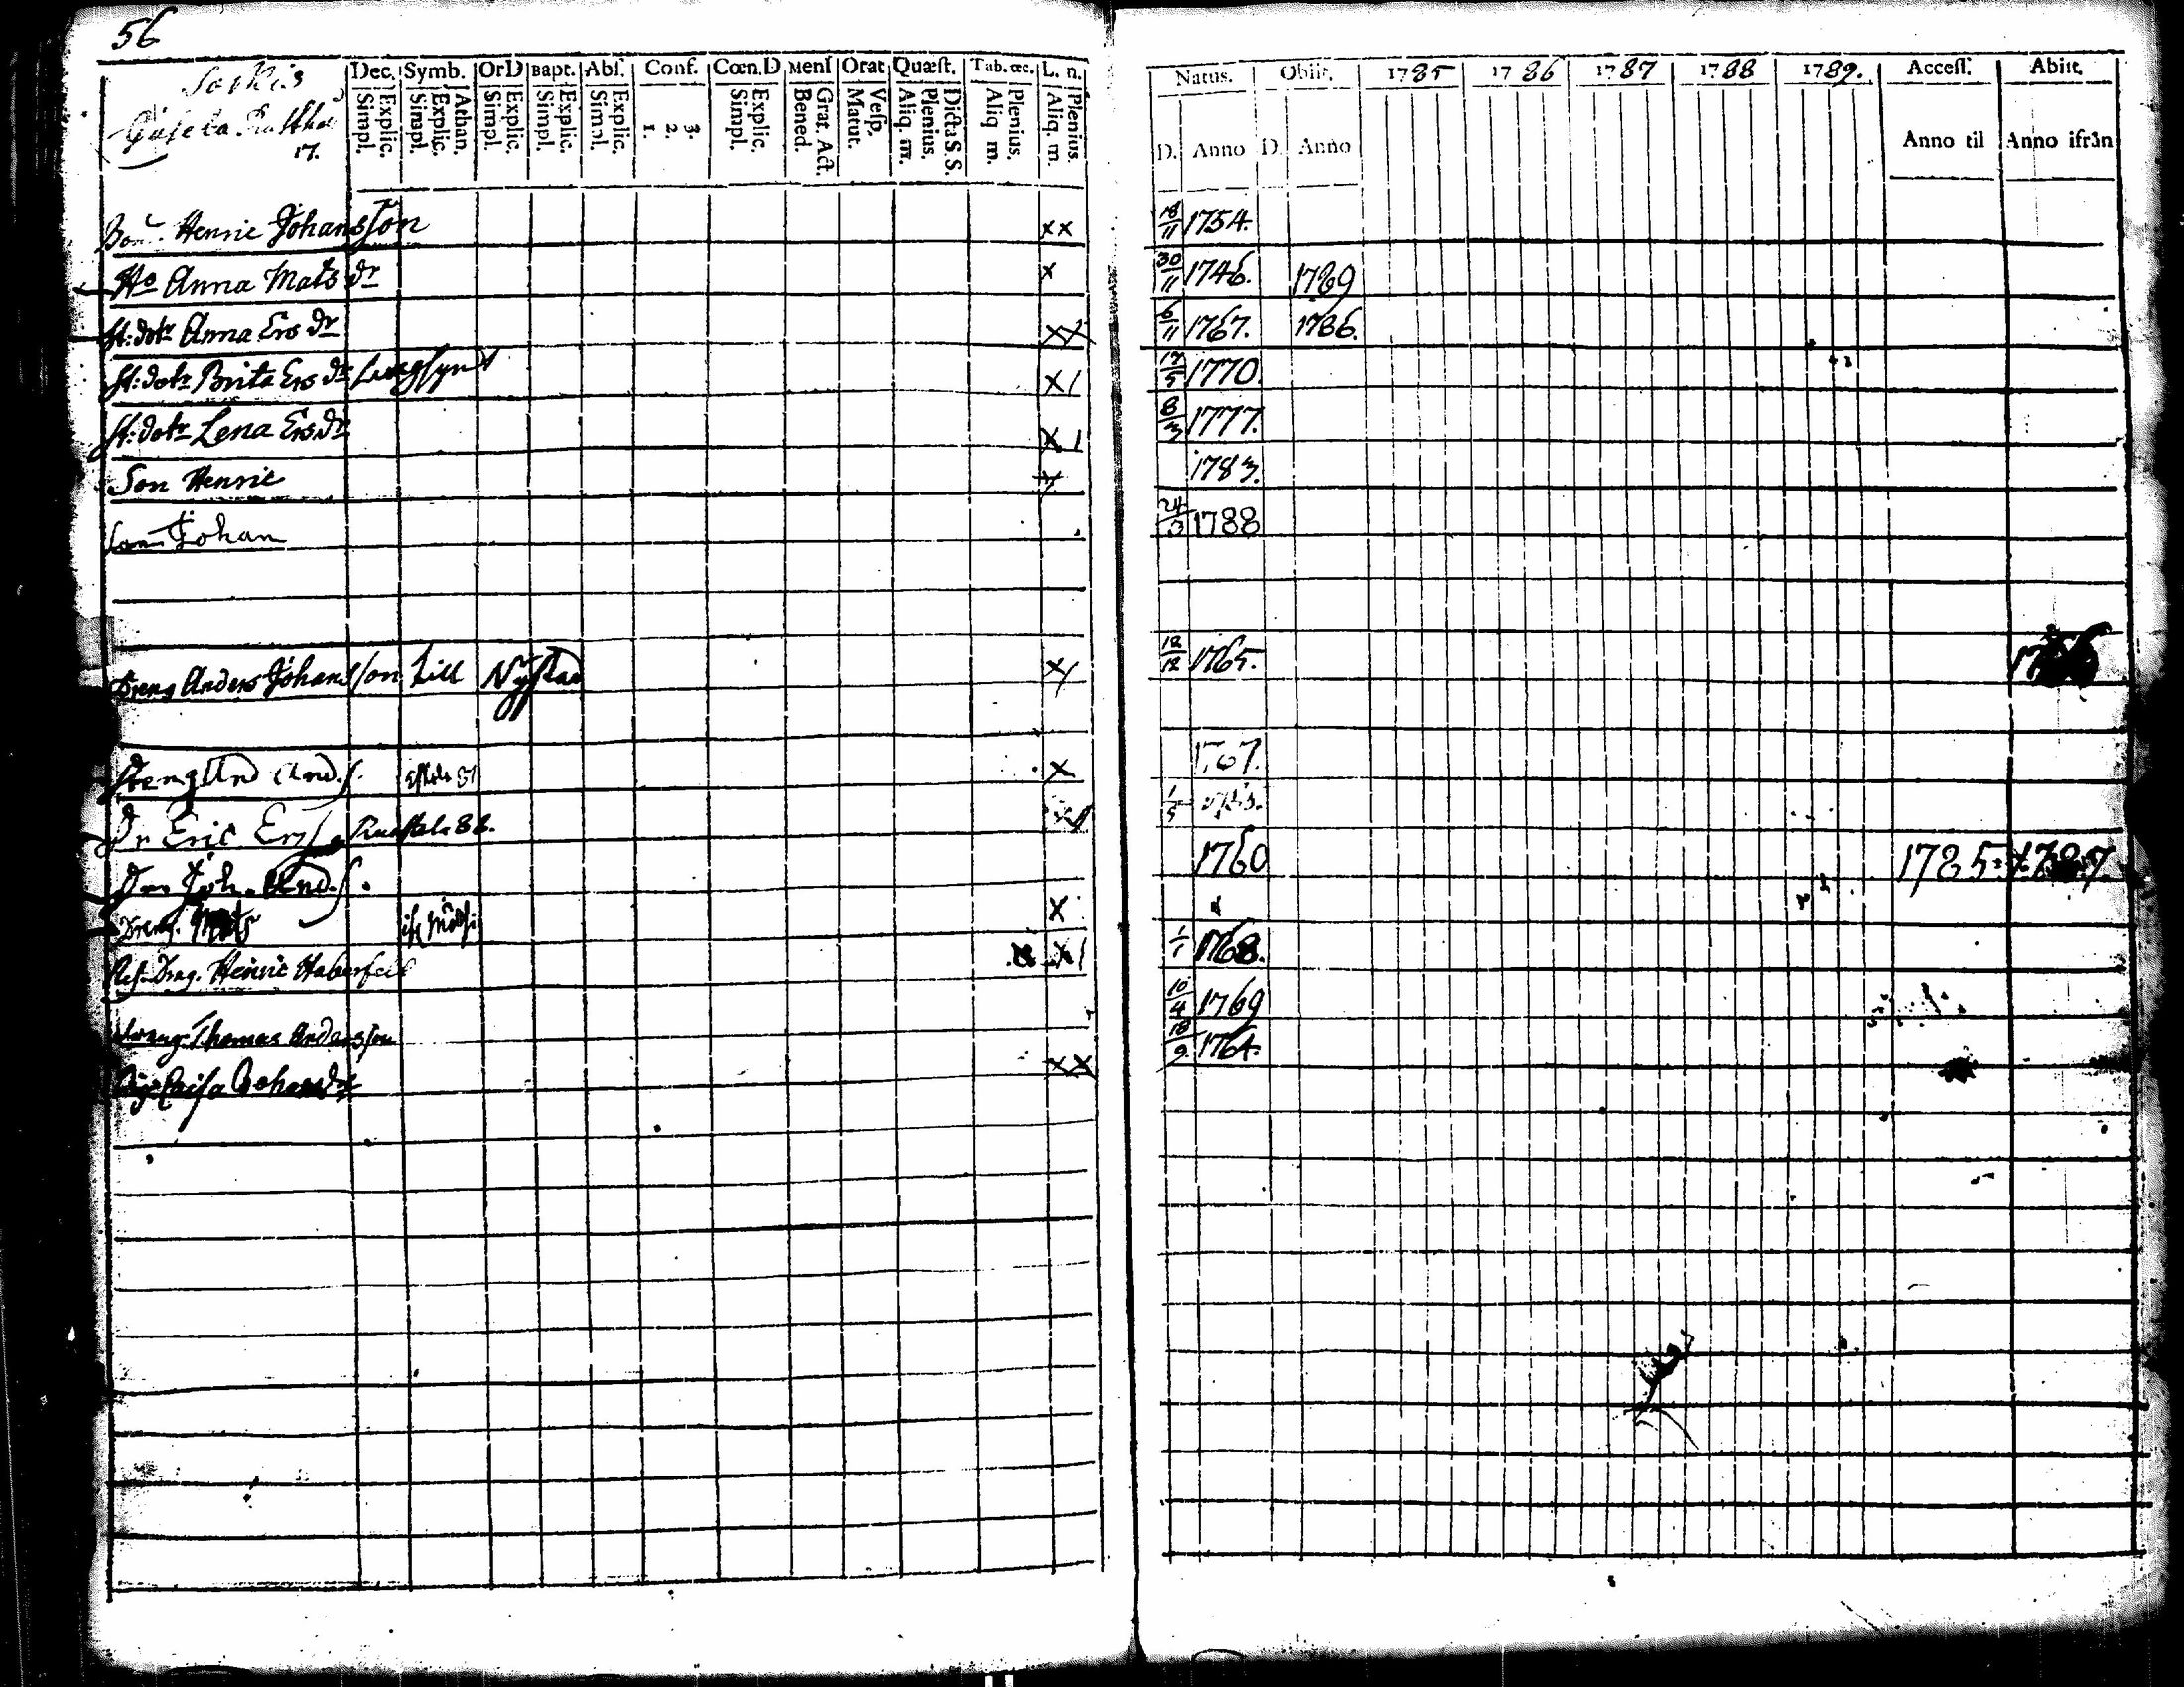 56
Dec. Symb. OrD Bapt. Abs. Conf. Cœn.D Mens Orat Quæst. Tab. œc. L. n.
Simpl. Explic. Simpl. Explic. Athan. Simpl. Explic. Simpl. Explic. Simpl. Explic. 1. 2. 3. Simpl. Explic. Bened. Grat. Act. Matut. Vesp. Aliq. m. Plenius. Dicta S.S. Aliq m. Plenius. Aliq. m. Plenius.
17.
Natus. Obiit. 1785 1786 1787 1788 1789. Access. Abiit.
D. Anno D. Anno Anno til Anno ifrån
Henric Johansson xx 18/11 1754.
Ho Anna Mats dr x 30/11 1746. 1789
st: dotr Anna Ers dr xx 6/11 1767. 1786.
st: dotr Brita Ers dr x/ 17/5 1770.
st: dotr Lena Ers dr x/ 8/3 1777.
Son Henric 1783.
Son Johan 24/3 1788
Dreng Anders Johansson till Nystad x/ 12/12 1765.
Dreng And And.s. x 1767.
Dr Eric Ers 88. 1/5
Joh. And.s. 1760 1785. 1787.
Dreng. Mats x
Drag. Henric x/ 1/1 1768.
Dreng Thomas Andersson 10/4 1769
Caisa Johansdr xx 18/9 1764.